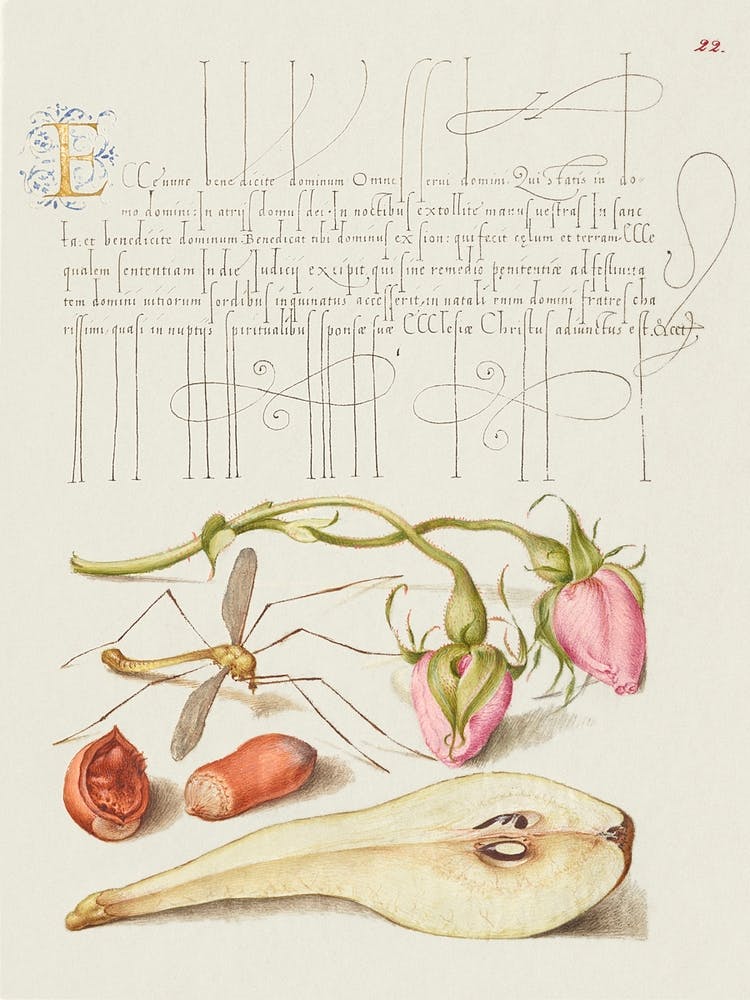 22.
ECCe nunc benedicite dominum Omnes servi domini: Qui statis in do-
mo domini: In atrijs domus dei: In noctibus extollite manus vestras In sanc
ta: et benedicite dominum: Benedicat tibi dominus ex sion: qui fecit cęlum et terram: CCCe
qualem sententiam In die Iudicij excipit, qui sine remedio penitentiæ ad festiuita
tem domini vitiorum sordibus inquinatus accesserit, in natali enim domini fratres cha
rissimi, quasi in nuptijs spiritualibus sponsæ suæ CCClesiæ Christus adiunctus est. &cet